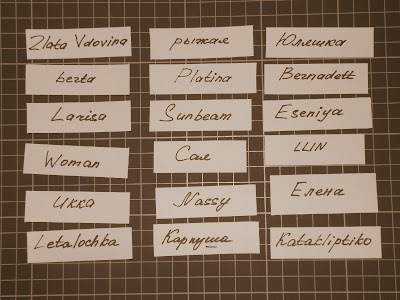 Zlata Vdovina
рыжая
Юляшка
berta
Platina
Bernadett
Larisa
Sunbeam
Eseniya
Woman
Сая
LLIN
Икка
Nassy
Елена
Letalochka
Карпуша
Katakliptiko